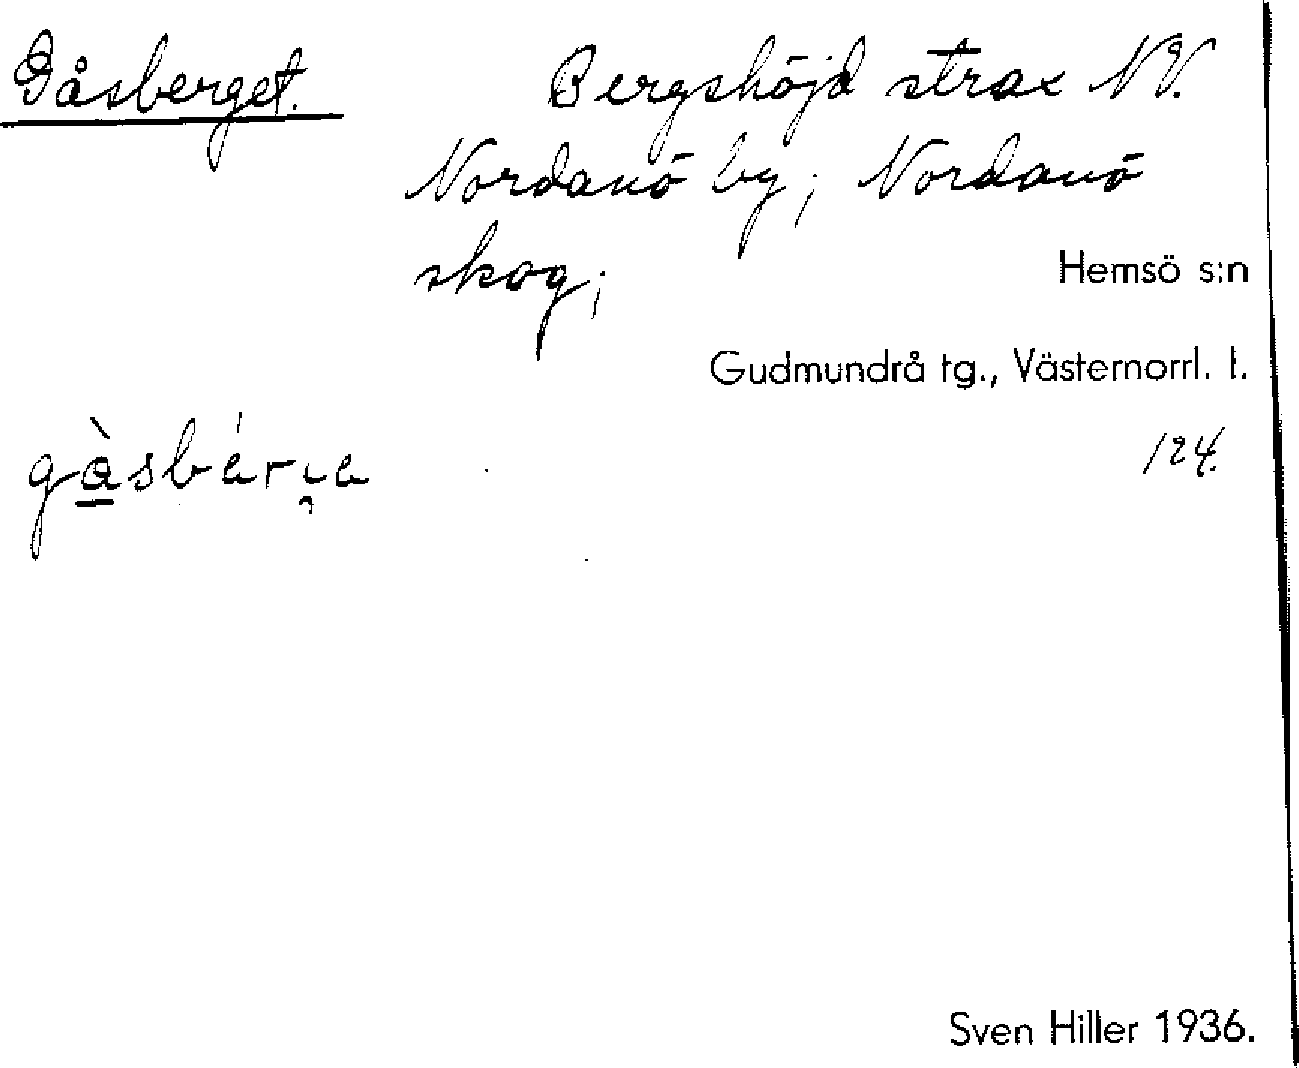 Gåsberget. Bergshöjd strax NV.
Nordanö by; Nordanö
skog;
Hemsö s:n
Gudmundrå tg., Västernorrl. l.
124.
Sven Hiller 1936.